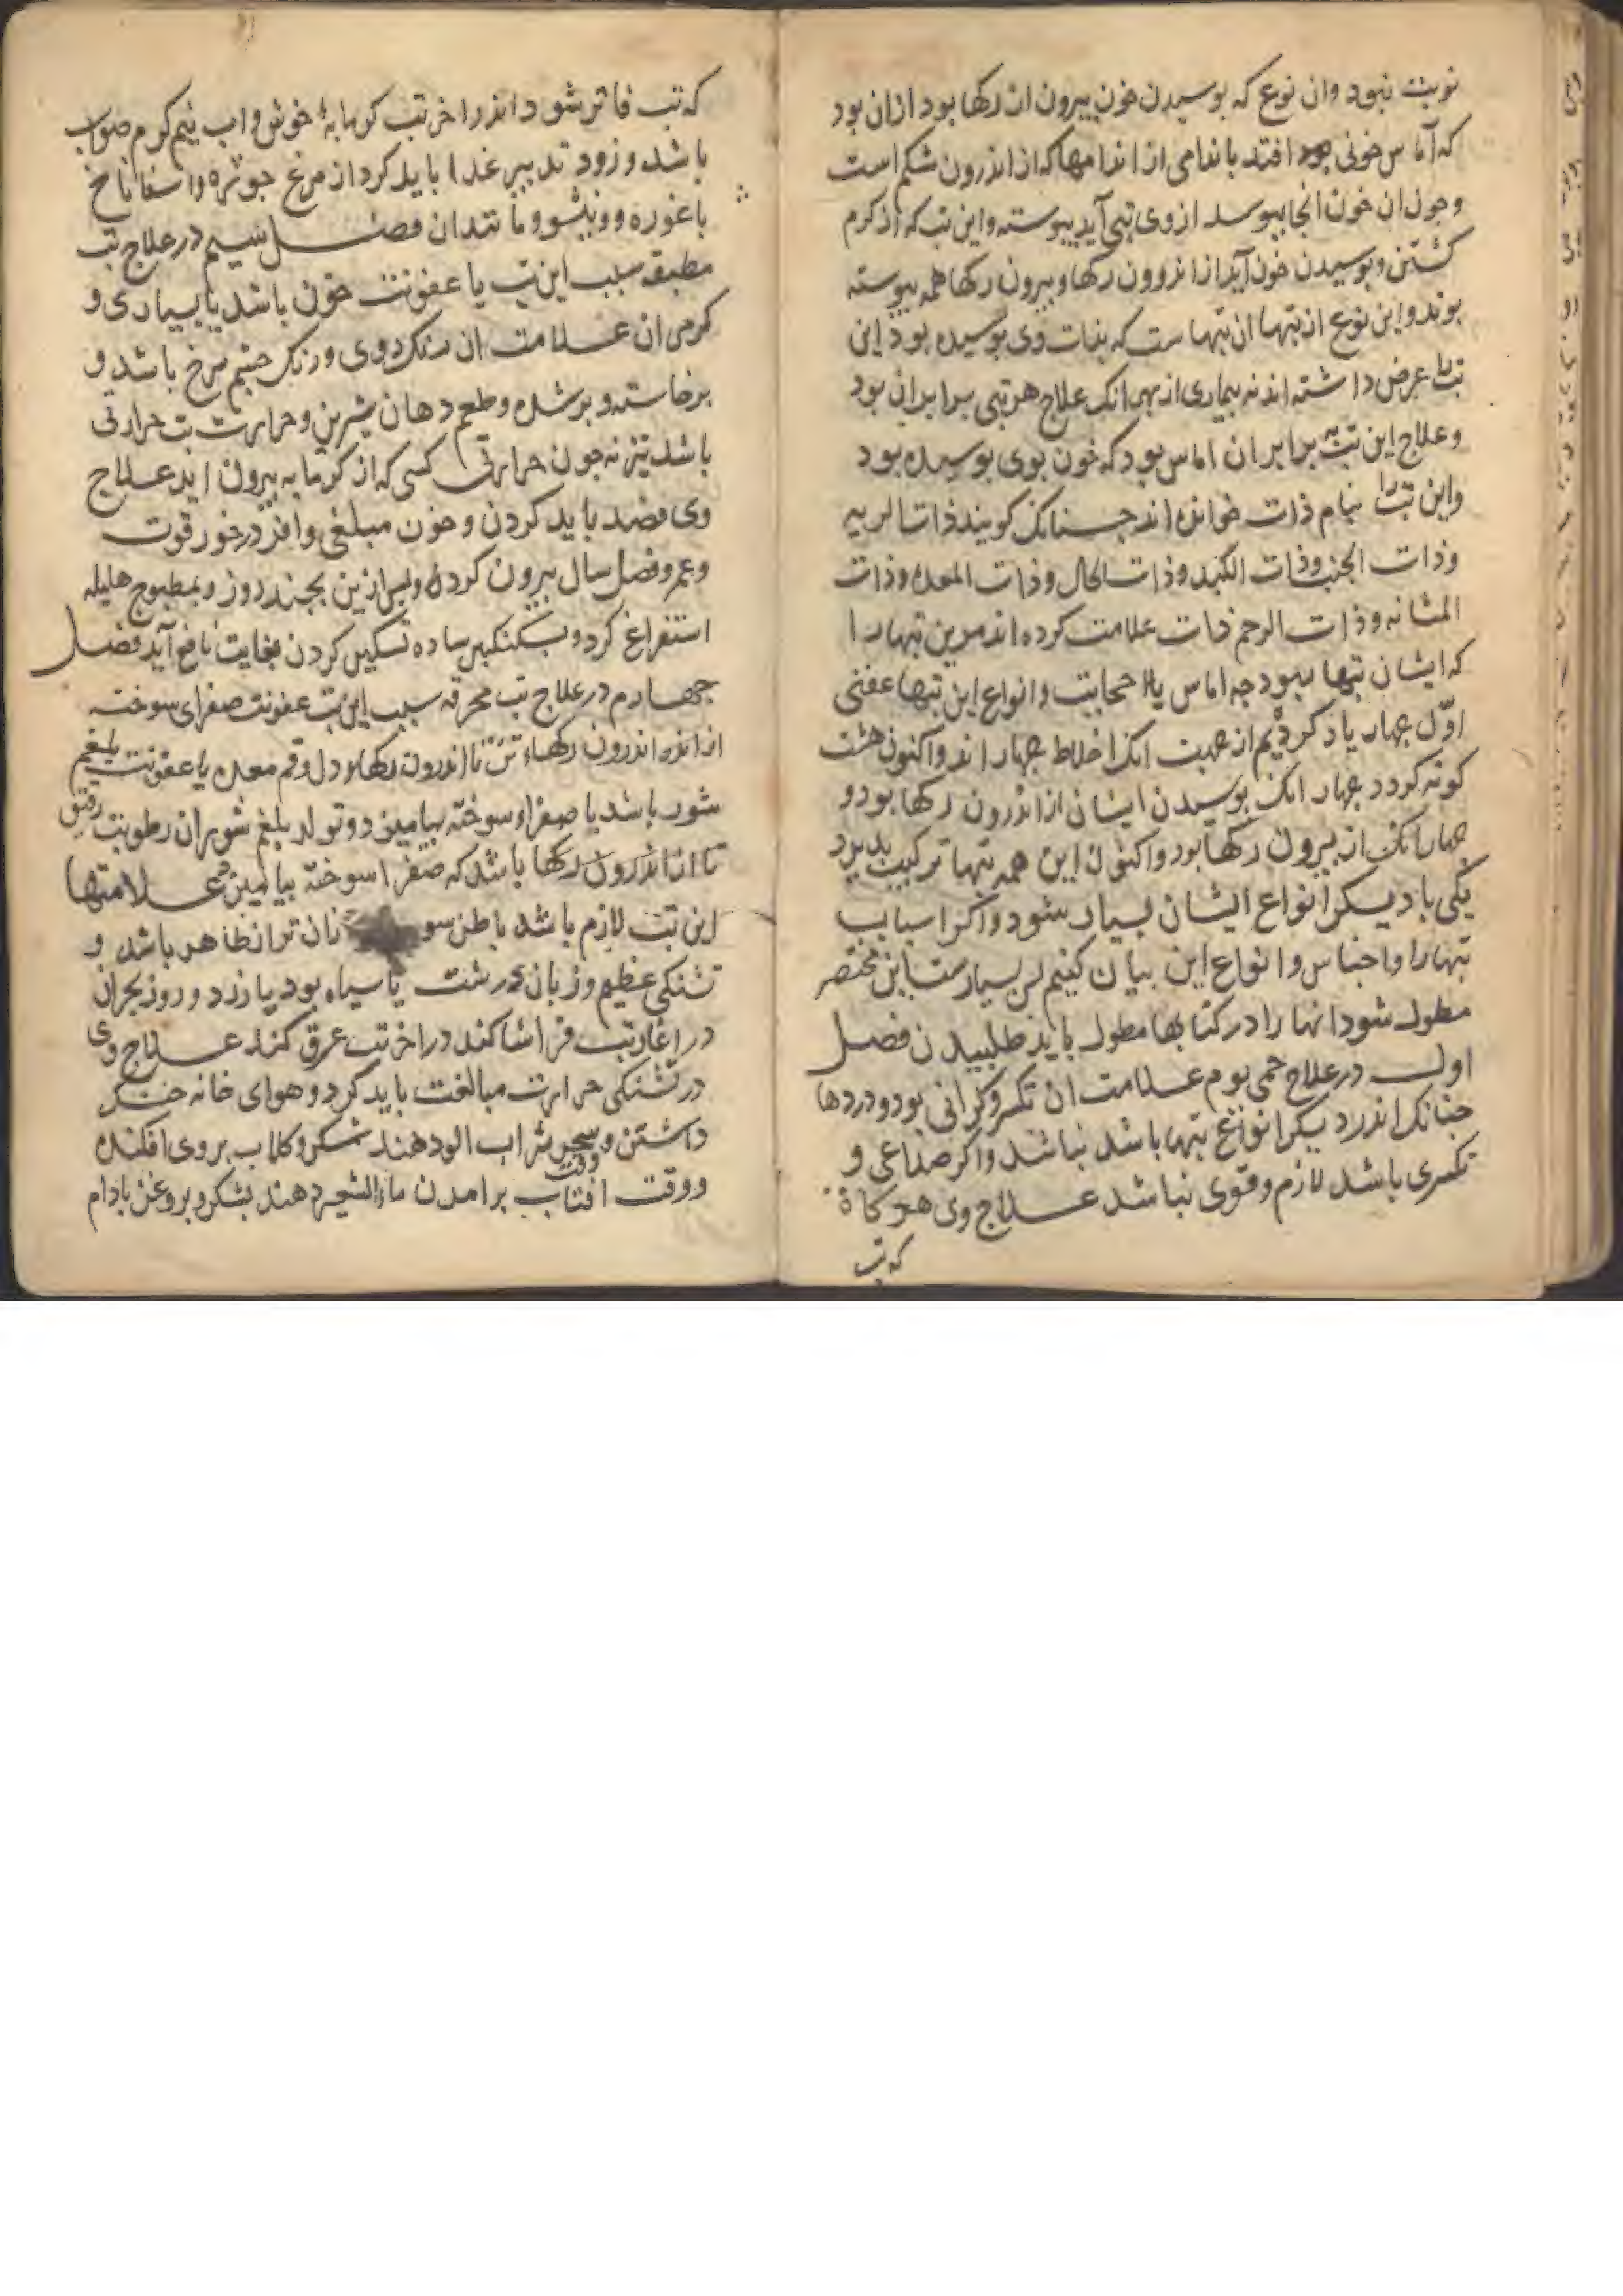 نوبت نبود وان نوع که بوسیدن خون بیرون از رکها بود ازان بود
که آماس خونی افتد باندامی از اندامها که از اندرون شکم است
وجون ان خون انجا ببوسد ازوی تبی آید بیوسته واین تب که از کرم
کشتن وبوسیدن خون آید از اندرون رکها وبیرون رکها همه بیوسته
بوند واین نوع از تبها ان تبهاست که بذات وی بوسیده بود این
تب را عرض داشته اند نه بیماری از بهر انک علاج هر تبی برابر ان بود
وعلاج این تب برابر ان اماس بود که خون بوی بوسیده بود
واین تب را بنام ذات خوانده اند جنانک کویند ذات الریه
وذات الجنب وذات الکبد وذات الحال وذات المعده وذات
المثانه وذات الرحم ذات علامت کرده اند مرین تبها را
که ایشان تبها نبود جه اماس یا وانواع این تبها عفنی
اوّل جهار یاد کردیم از جهت انک اخلاط جهار اند واکنون هشت
کونه کردد جهار انک بوسیدن ایشان از اندرون رکها بود و
جهار انک از بیرون رکها بود واکنون این همه تبها ترکیب بدیرد
یکی با دیکر انواع ایشان بسیار شود واکر اسباب
تبها را واجناس وانواع این بیان کنیم بسیارست این مختصر
مطول شود انها را در کتابها مطول باید طلبیدن فصل
اول در علاج حمی یوم علامت ان تکسر وکرانی بود ودردها
جنانک اندر دیکر انواع تبها باشد نباشد واکر صداعی و
تکسری باشد لازم وقوی نباشد علاج وی هر کاه
که تب
که تب فاتر شود اندر اخر تب کرمابه خوش واب نیم کرم صواب
باشد وزود تدبیر غدا باید کرد از مرغ جوزه واسفاناخ
با غوره ومانندان فصل سیم در علاج تب
مطبقه سبب این تب یا عفونت خون باشد یا بسیاری و
کرمی ان علامت ان رنک روی ورنک جشم سرخ باشد و
برخاسته وبر شده وطعم دهان شیرین وحرارت تب حرارتی
باشد تیز نه جون حرارتی کسی که از کرمابه بیرون اید علاج
وی فصد باید کردن وخون مبلغی وافر درخور قوت
وعمر وفصل سال بیرون کرده وبس ازین بجند روز وبمطبوخ هلیله
استفراغ کرد وبسکنکبین ساده تسکین کردن بغایت نافع آید فصل
جهارم در علاج تب محرقه سبب این تب عفونت صفرای سوخته
از اندرون رکهاء تن تا اندرون رکهاء دل وفم معده یا عفونت بلغم
شور باشد با صفراء سوخته بیامیزد وتولد بلغم شور ان رطوبت رقیق
تا از اندرون رکها باشد که صفرا سوخته بیامیزد علامتها
این تب لازم باشد باطن تر از ظاهر باشد و
تشنکی عظیم وزبان درشت یا سیاه بود یا زرد وروز بحران
در اغاز تب فراشا کند در اخر تب عرق کند علاج وی
در تشنکی حرارت مبالغت باید کرد وهوای خانه خنک
داشتن وقت شراب الو دهند بشکر وکلاب بروی افکنده
ووقت افتاب برامدن ماءالشعیر دهند بشکر وبروغن بادام